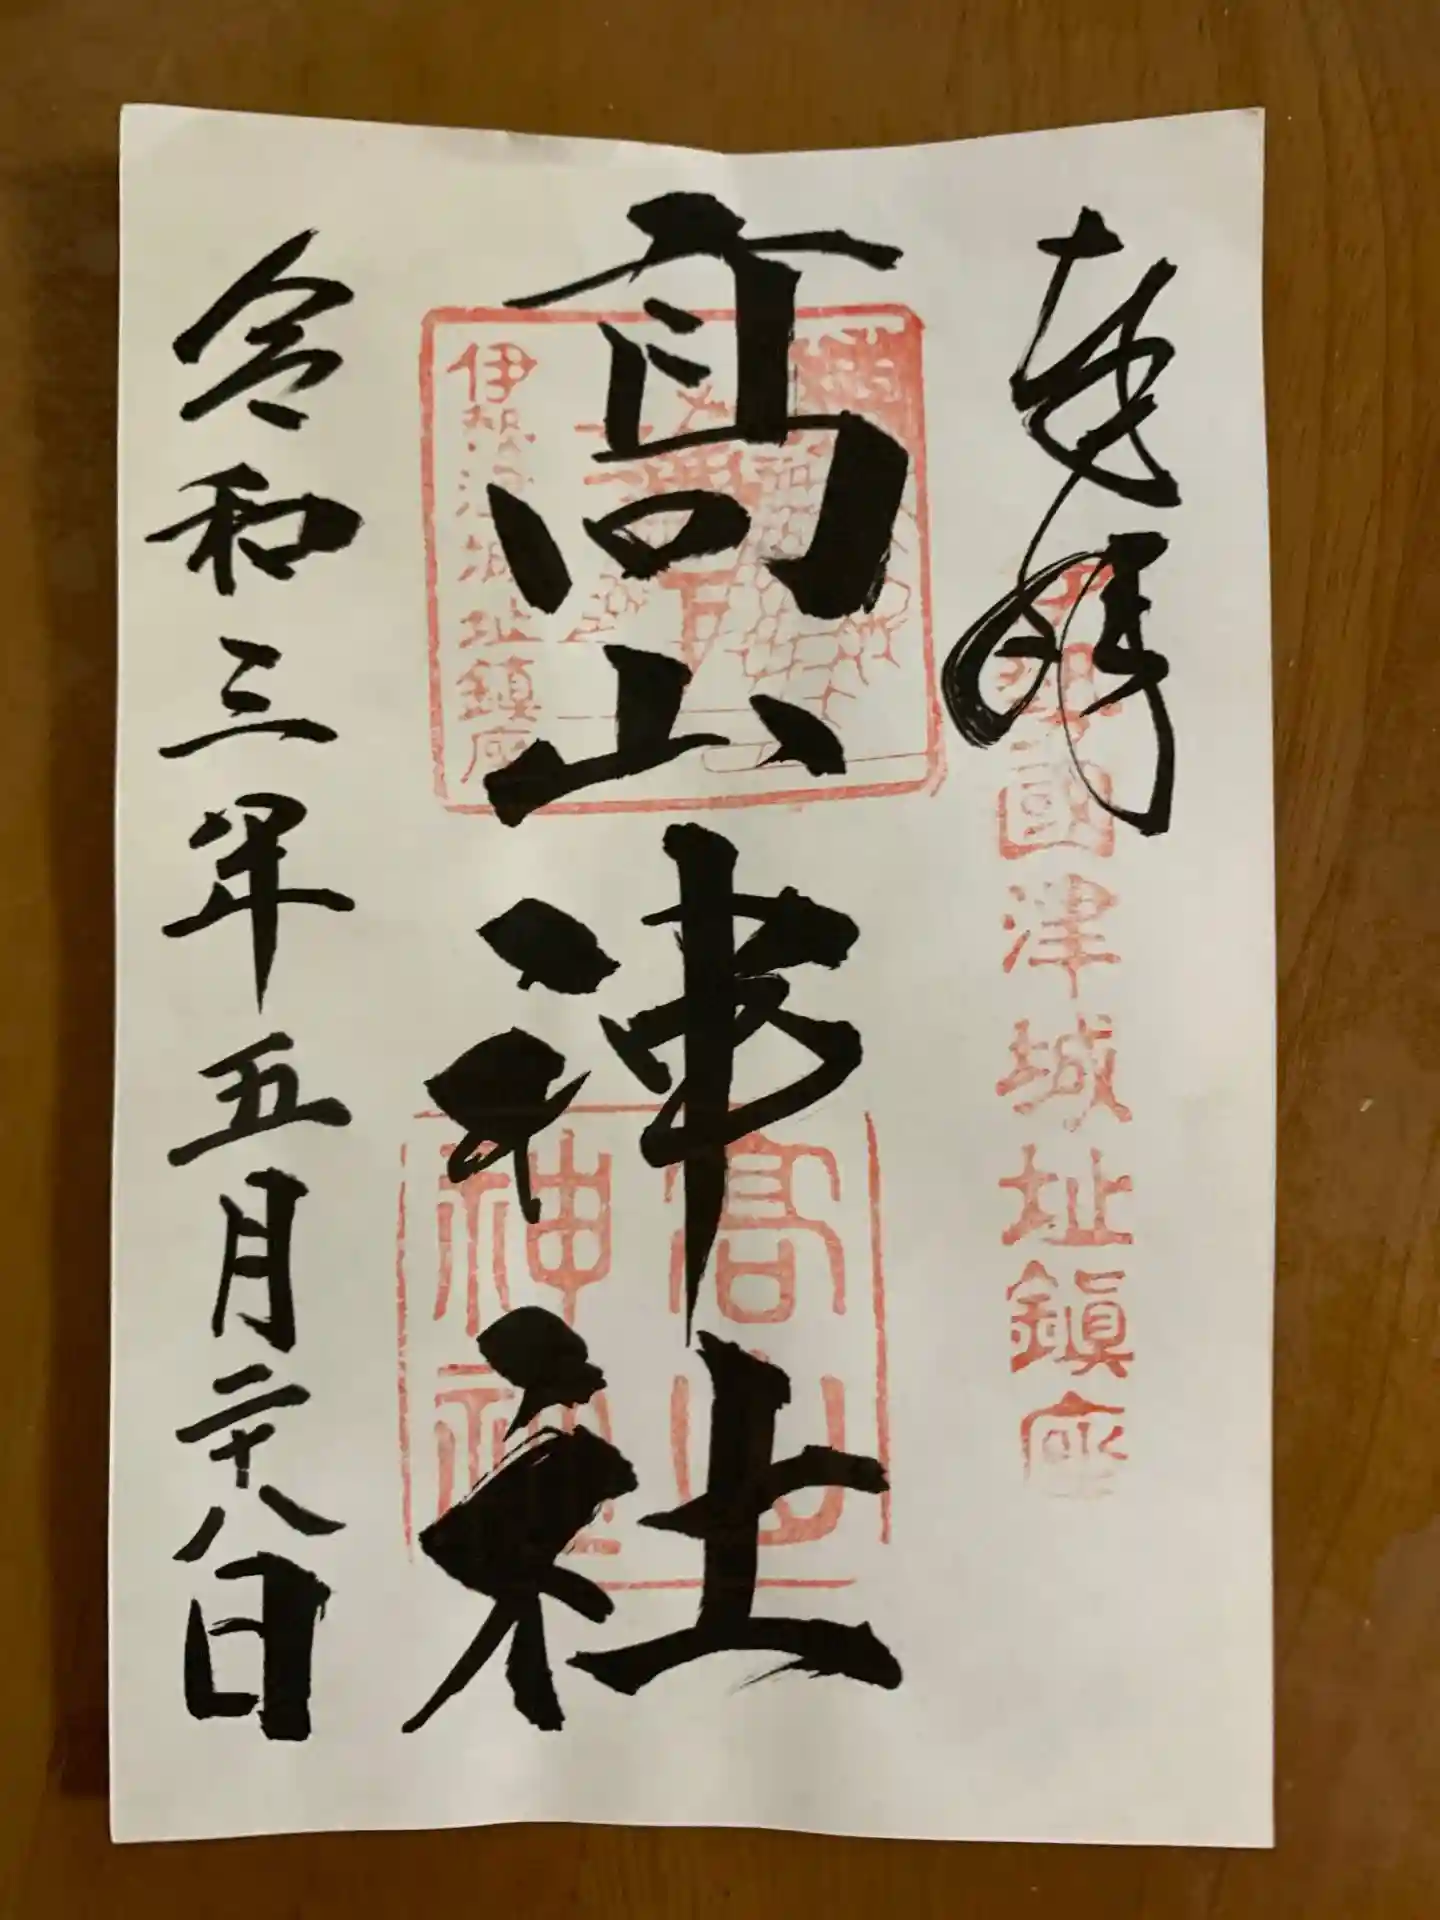 奉拝
伊勢國津城址鎮座
高山神社
伊勢津城址鎮座
高山
神社
令和三年五月二十八日